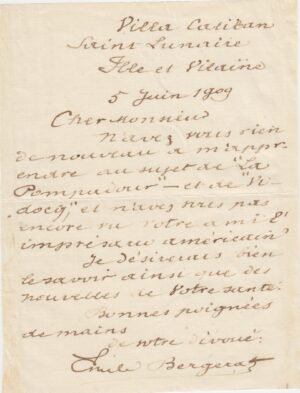 Villa Caliban
Saint Lunaire
Ille et Vilaine
5 juin 1909
Cher Monsieur
N'avez vous rien
de nouveau à m'appr-
endre au sujet de "La
Pompadour — et de "Vi-
docq", et n'avez vous pas
encore vu votre ami l'
imprésario américain?
Je désirerais bien
le savoir ainsi que des
nouvelles de votre santé.
Bonnes poignées
de mains
de votre dévoué.
Émile Bergerat